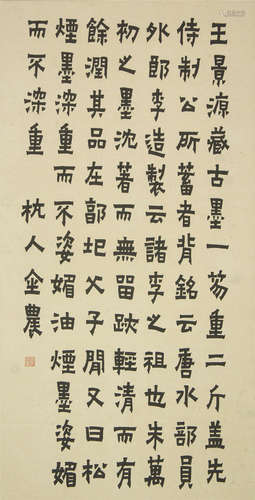 王景源藏古墨一笏重二斤盖先
侍制公所蓄者背銘云唐水部員
外郎李造製云諸李之祖也朱萬
初之墨沈著而無留跡輕清而有
餘潤其品在郭圯父子閒又曰松
煙墨深重而不姿媚油煙墨姿媚
而不深重 杭人金農